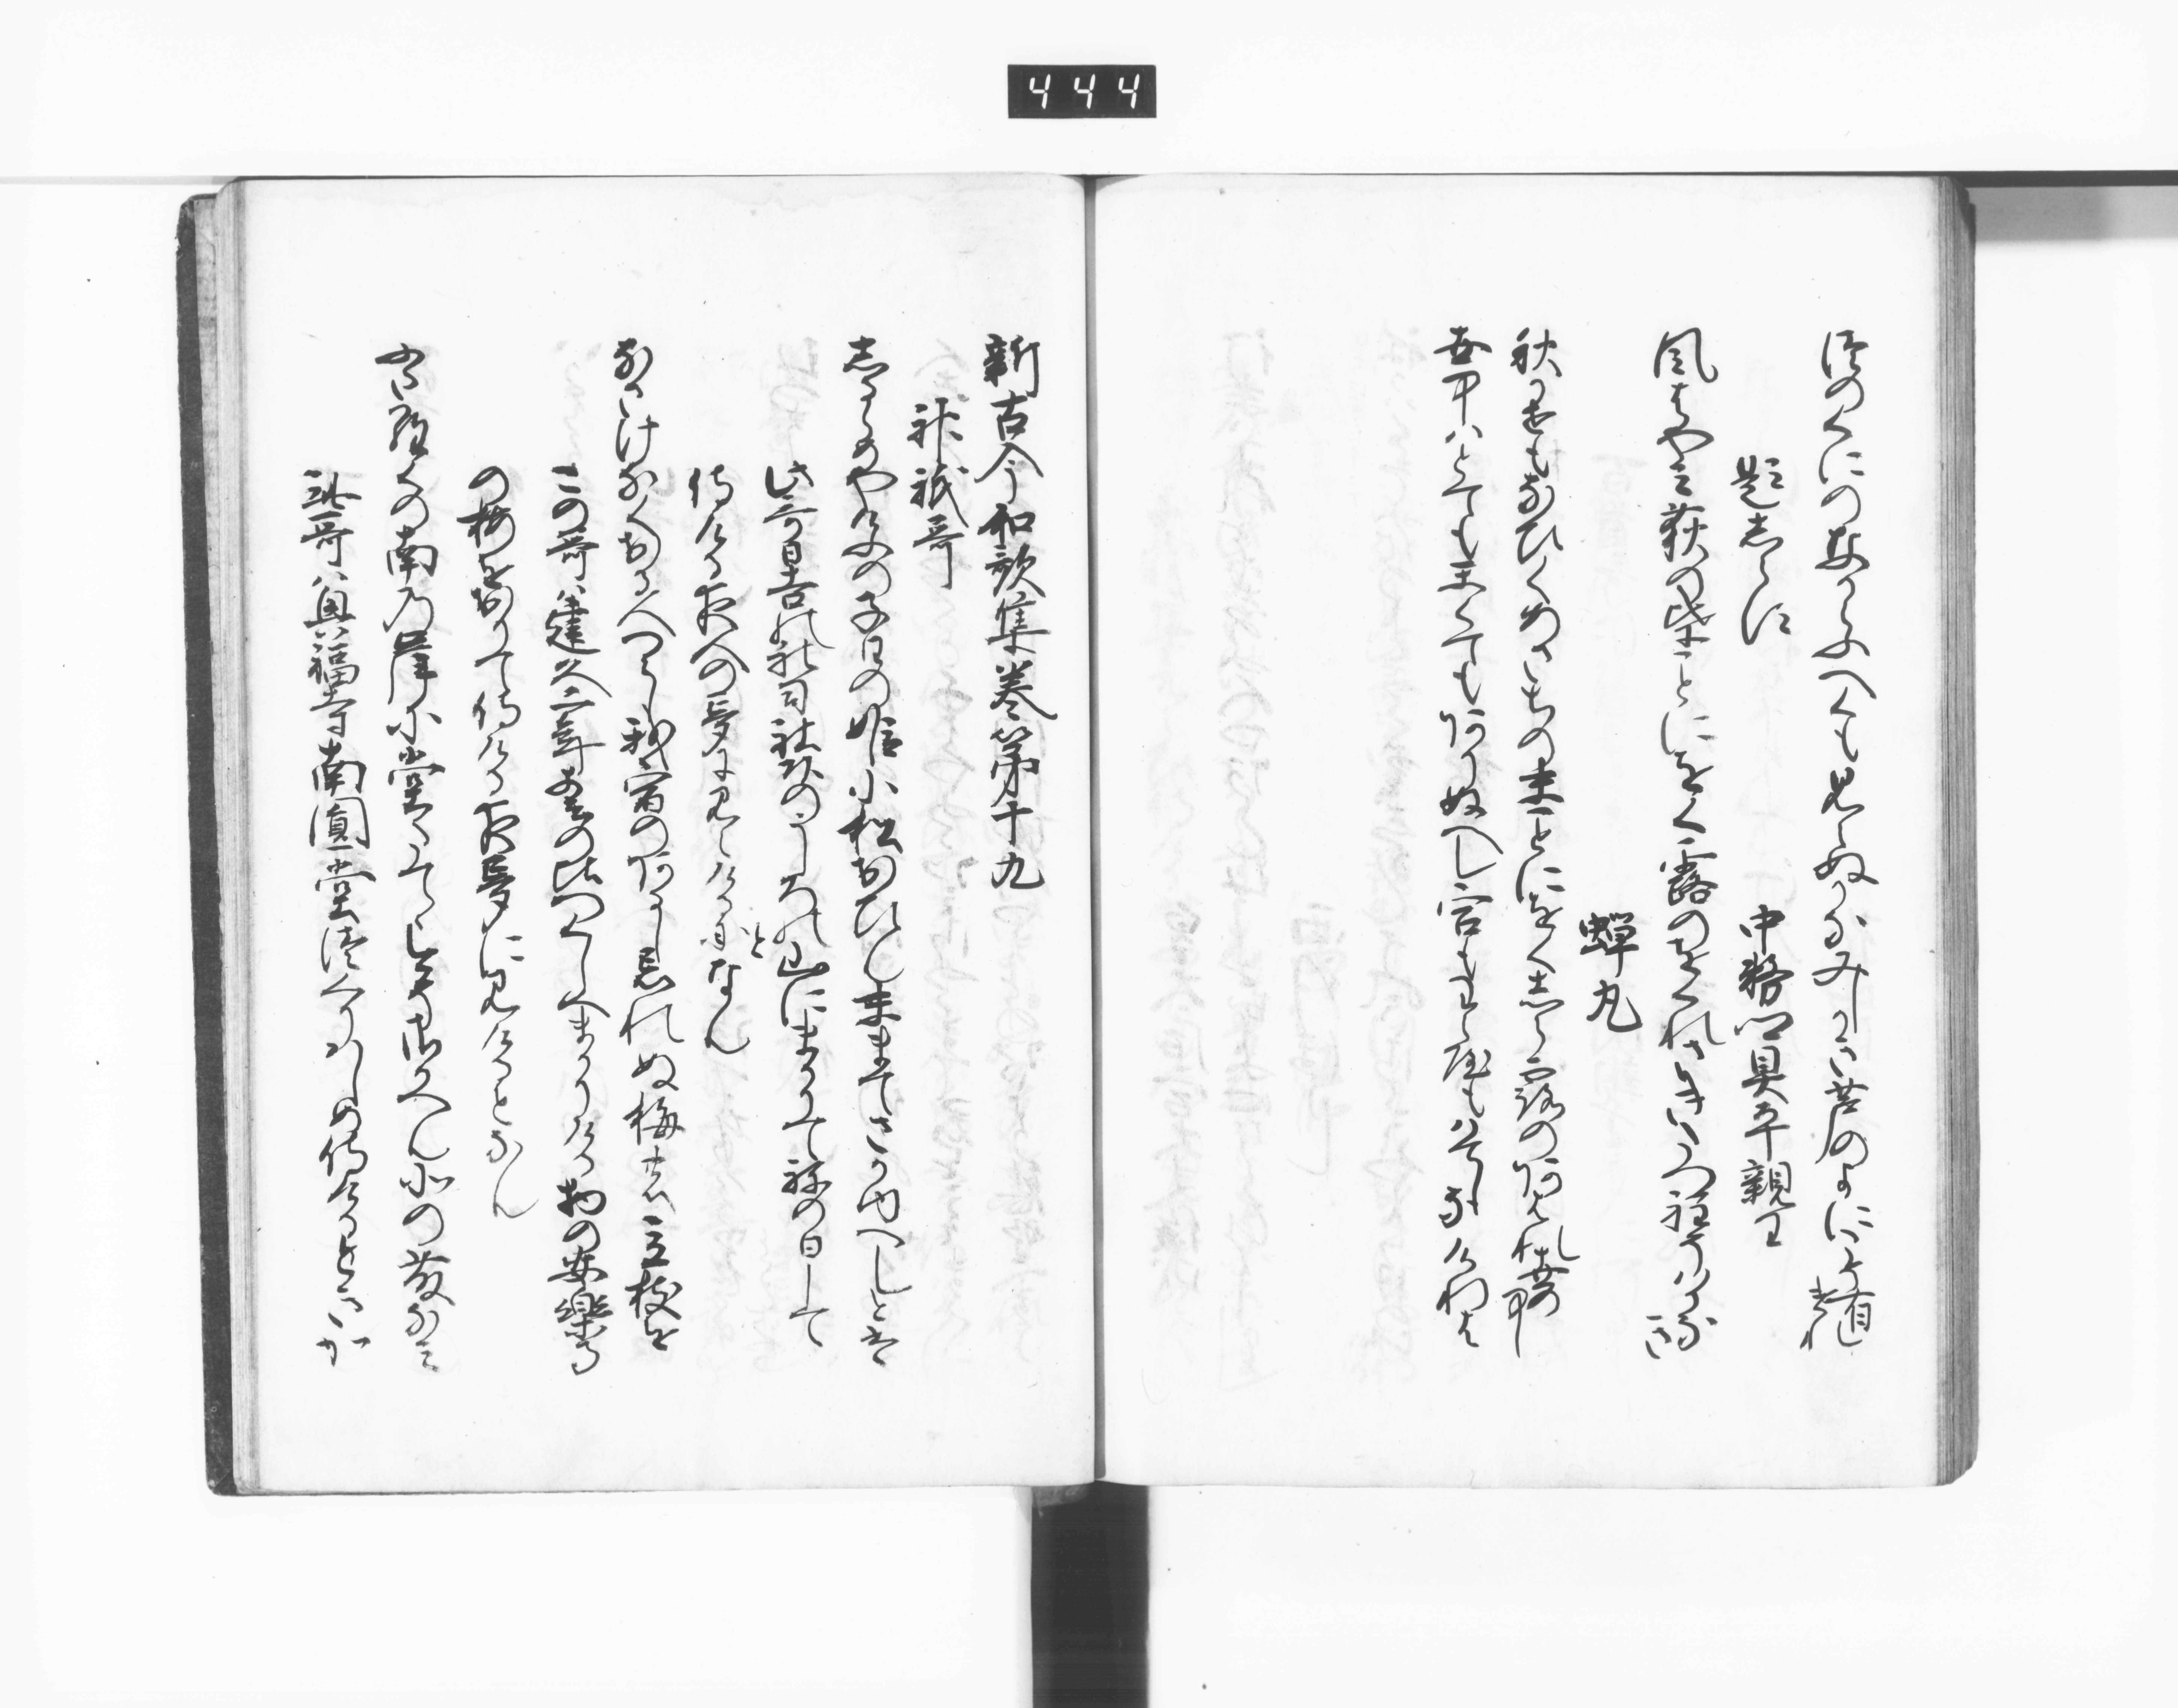 444
津のくにのなからふへくも見えぬかなみしかき芦のよにこそ有けれ
題しらす
中務卿具平親王
風はやみ荻の葉ことにをく露のをくれさきたつ程のはかなさ
蝉丸
秋風になひくあさちの末ことにをくしら露のあはれ世中
世中はとてもかくてもありぬへし宮もわら屋もはてしなけれは
新古今和歌集巻第十九
神祇哥
しるらめやけふの子日の姫小松おひん末まてさかゆへしとは
此哥日吉の社司社頭のうしろの山にまかりて子の日して
侍ける夜人の夢に見えけるとなん
なさけなくおる人つらし我宿のあるし忘れぬ梅の立枝を
この哥は建久二年春の比つくしへまかりける物の安楽寺
の梅をおりて侍ける夜夢に見えけるとなん
ふたらくの南の岸に堂たてていまそさかへん北の藤なみ
此哥は興福寺南圓堂つくりはしめ侍ける時かすか